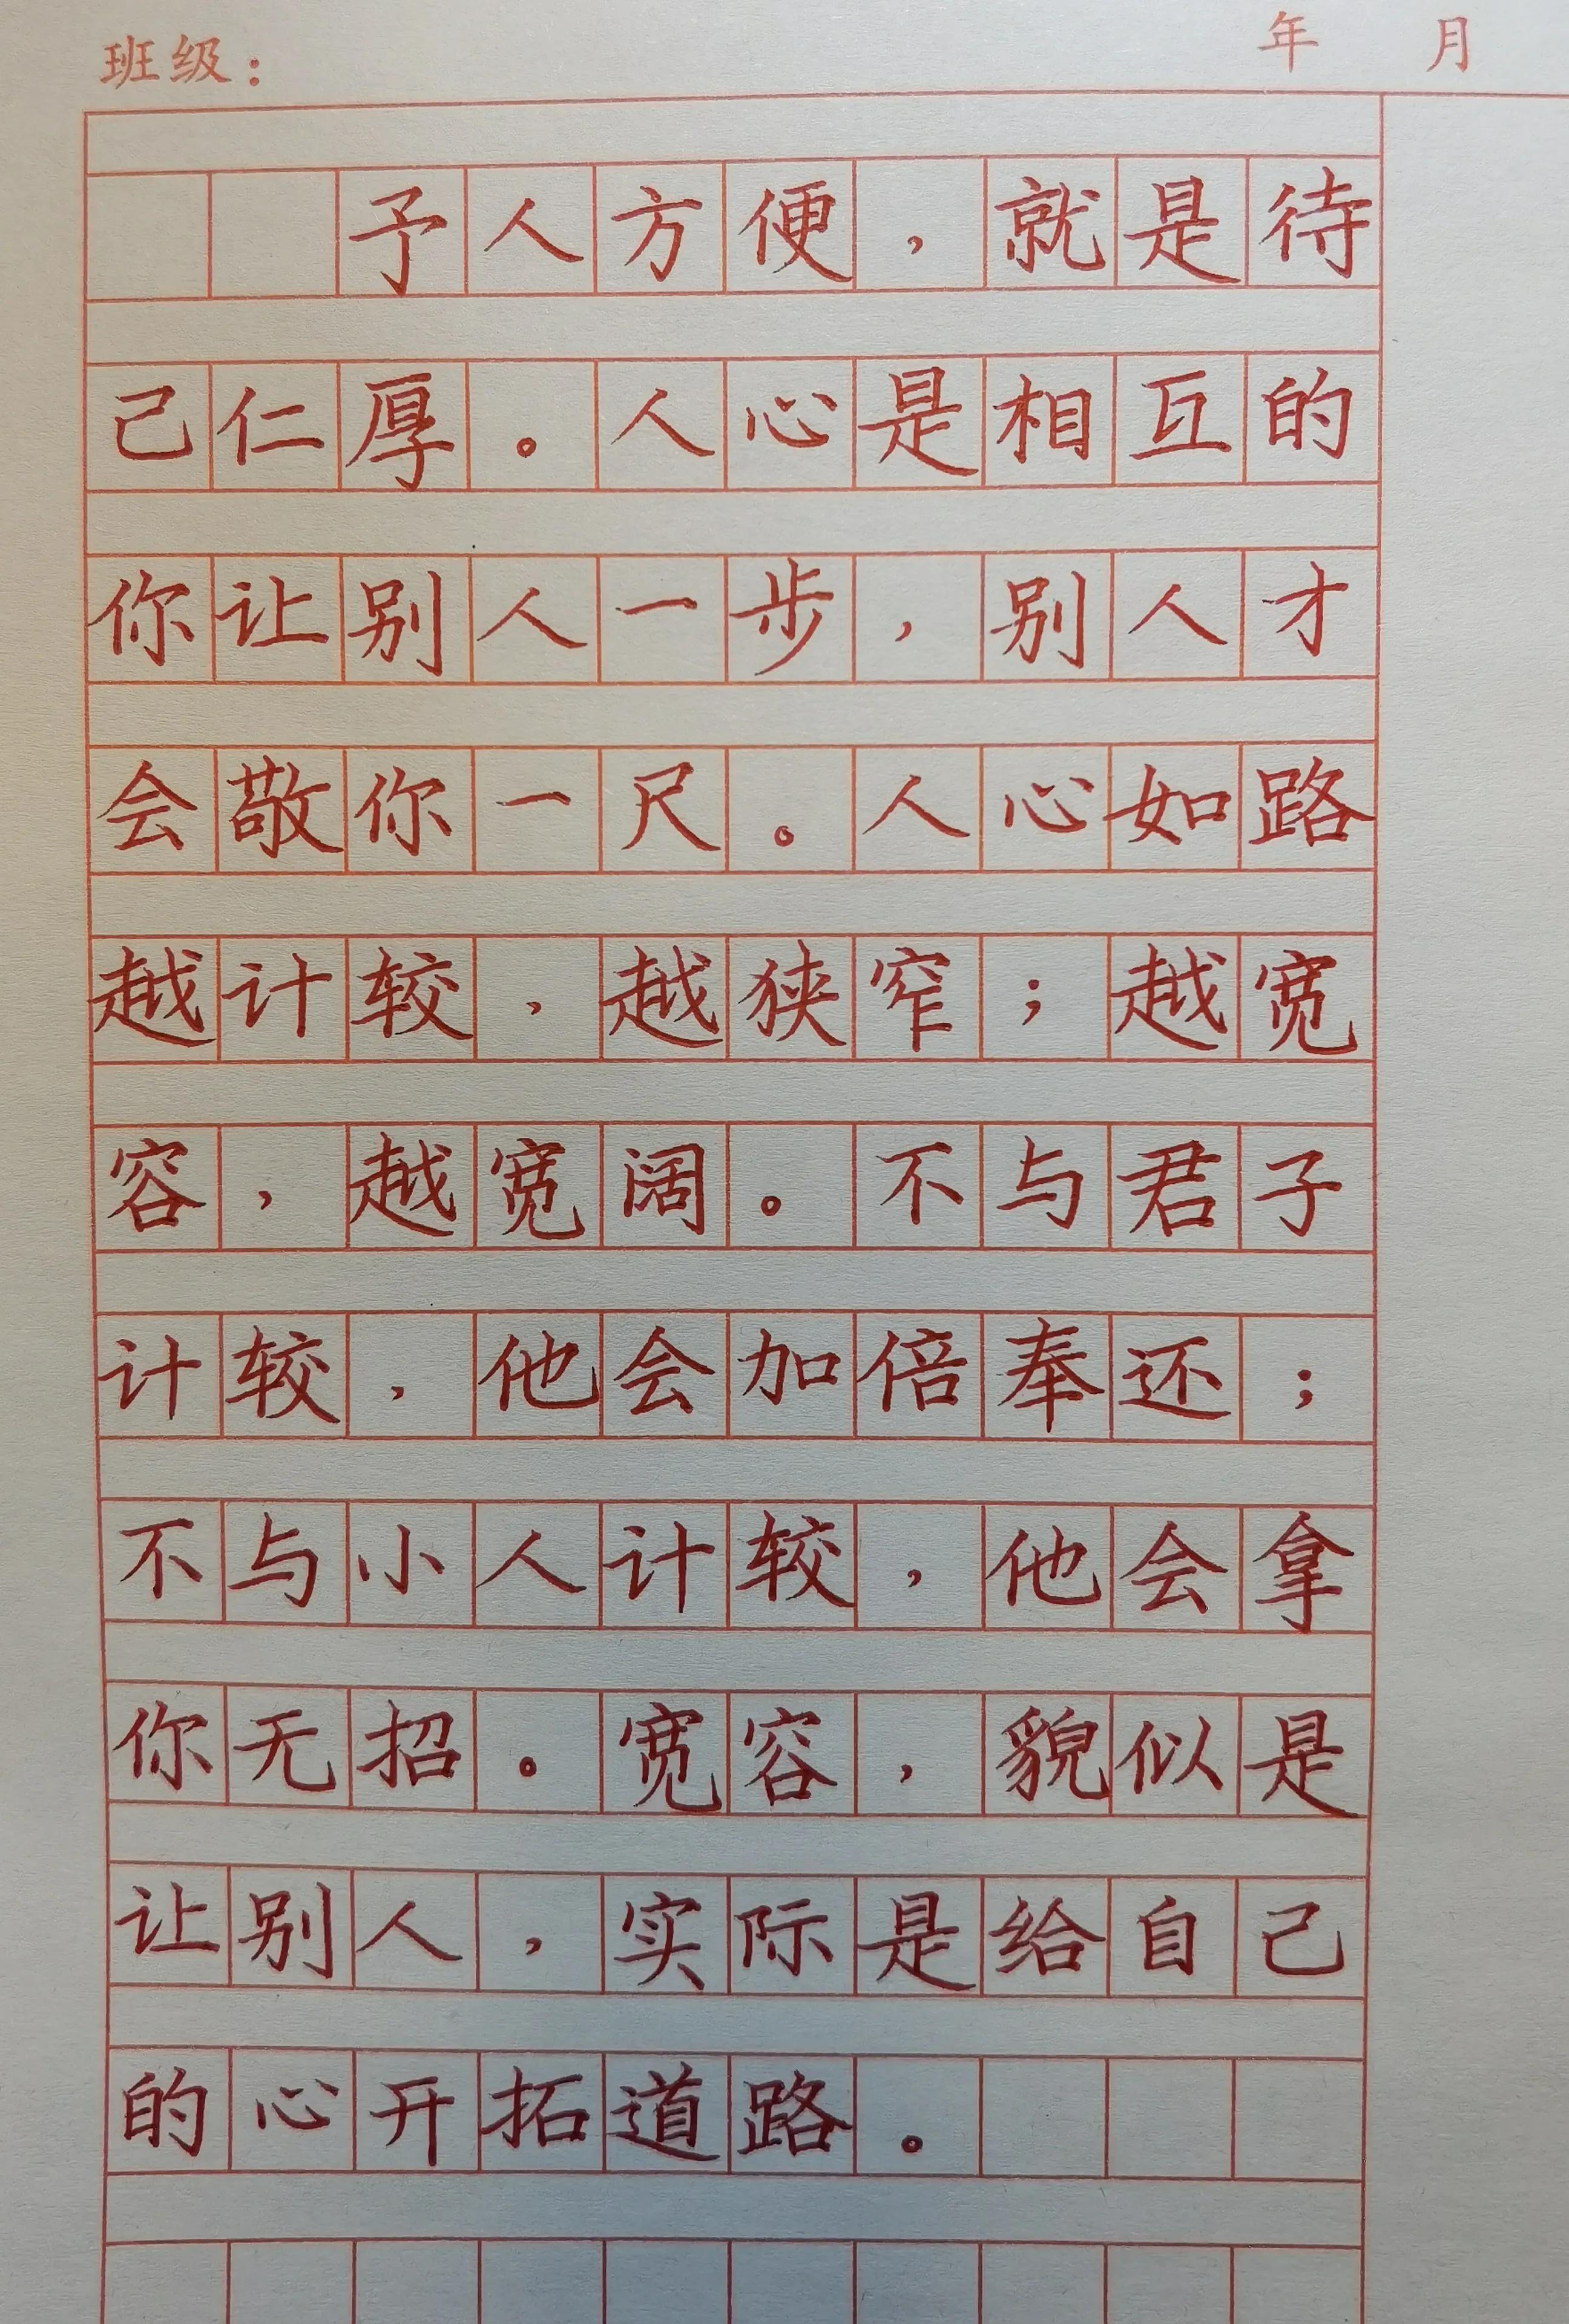 班级： 年 月
予人方便，就是待
己仁厚。人心是相互的
你让别人一步，别人才
会敬你一尺。人心如路
越计较，越狭窄；越宽
容，越宽阔。不与君子
计较，他会加倍奉还；
不与小人计较，他会拿
你无招。宽容，貌似是
让别人，实际是给自己
的心开拓道路。